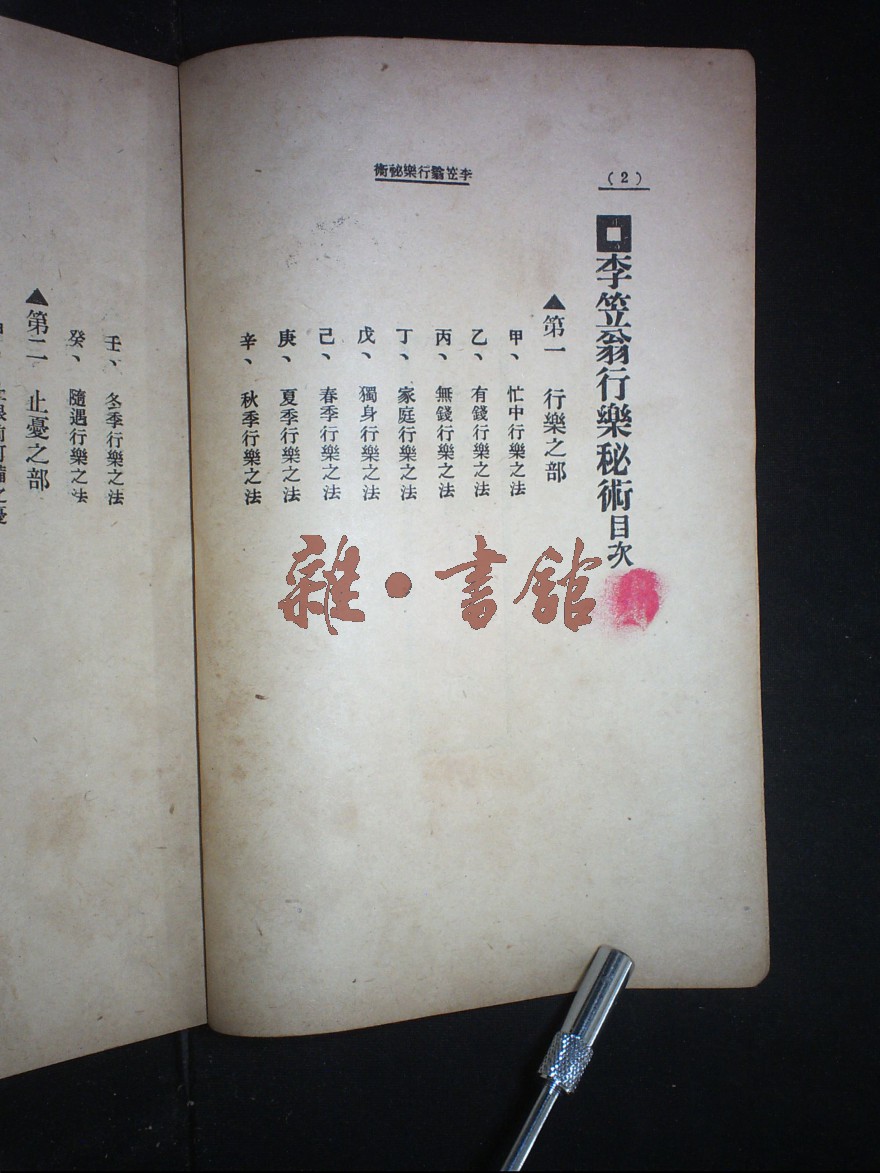 (2)
李笠翁行樂秘術
李笠翁行樂秘術目次
▲第一 行樂之部
甲、 忙中行樂之法
乙、 有錢行樂之法
丙、 無錢行樂之法
丁、 家庭行樂之法
戊、 獨身行樂之法
己、 春季行樂之法
庚、 夏季行樂之法
辛、 秋季行樂之法
壬、 冬季行樂之法
癸、 隨遇行樂之法
▲第二 止憂之部
雜·書館